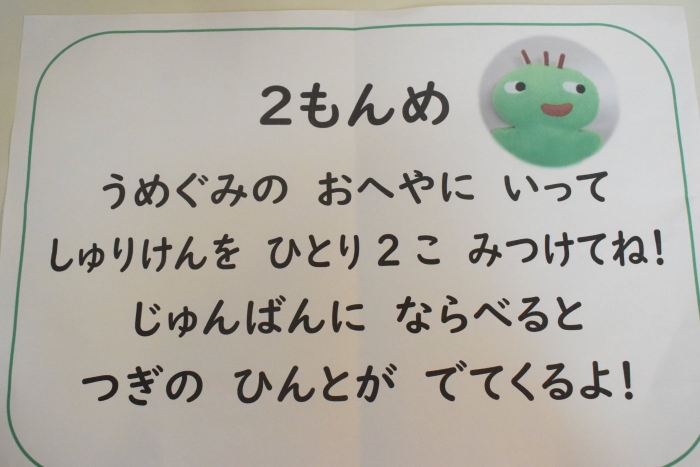 2もんめ
うめぐみの おへやに いって
しゅりけんを ひとり2こ みつけてね!
じゅんばんに ならべると
つぎの ひんとが でてくるよ!